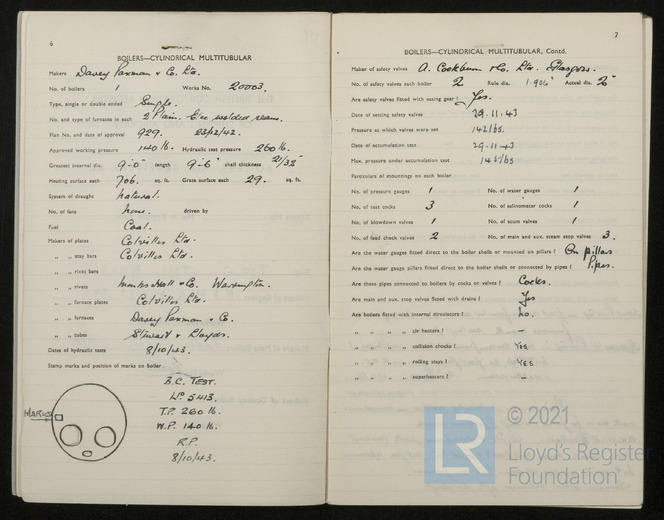 6
BOILERS—CYLINDRICAL MULTITUBULAR
Makers Davey Paxman & Co. Ltd.
No. of boilers 1 Works No. 20003.
Type, single or double ended Single.
No. and type of furnaces in each 2 Plain. welded seams.
Plan No. and date of approval 929. 23/12/42.
Approved working pressure 140 lb. Hydraulic test pressure 260 lb.
Greatest internal dia. 9'-0" length 9'-6" shell thickness 21/32"
Heating surface each 706. sq. ft. Grate surface each 29. sq. ft.
System of draught Natural.
No. of fans None. driven by
Fuel Coal.
Makers of plates Colvilles Ltd.
„ „ stay bars Colvilles Ltd.
„ „ rivet bars
„ „ rivets & Co. Warrington.
„ „ furnace plates Colvilles Ltd.
„ „ furnaces Davey Paxman & Co.
„ „ tubes Stewart & Lloyds.
Dates of hydraulic tests 8/10/43.
Stamp marks and position of marks on boiler
MARKS
B.C. TEST.
No 5413.
T.P. 260 lb.
W.P. 140 lb.
R.P.
8/10/43.
7
BOILERS—CYLINDRICAL MULTITUBULAR, Contd.
Maker of safety valves A. Cockburn & Co. Ltd. Glasgow.
No. of safety valves each boiler 2 Rule dia. 1.906" Actual dia. 2"
Are safety valves fitted with easing gear? Yes.
Date of setting safety valves 29.11.43
Pressure at which valves were set 142 lbs.
Date of accumulation test 29-11-43
Max. pressure under accumulation test 145 lbs
Particulars of mountings on each boiler
No. of pressure gauges 1 No. of water gauges 1
No. of test cocks 3 No. of salinometer cocks 1
No. of blowdown valves 1 No. of scum valves 1
No. of feed check valves 2 No. of main and aux. steam stop valves 3.
Are the water gauges fitted direct to the boiler shells or mounted on pillars? On pillars
Are the water gauge pillars fitted direct to the boiler shells or connected by pipes? Pipes.
Are these pipes connected to boilers by cocks or valves? Cocks.
Are main and aux. stop valves fitted with drains? Yes
Are boilers fitted with internal circulators? No.
„ „ „ „ air heaters? —
„ „ „ „ collision chocks? YES
„ „ „ „ rolling stays? YES
„ „ „ „ superheaters? —
LR
© 2021
Lloyd's Register
Foundation